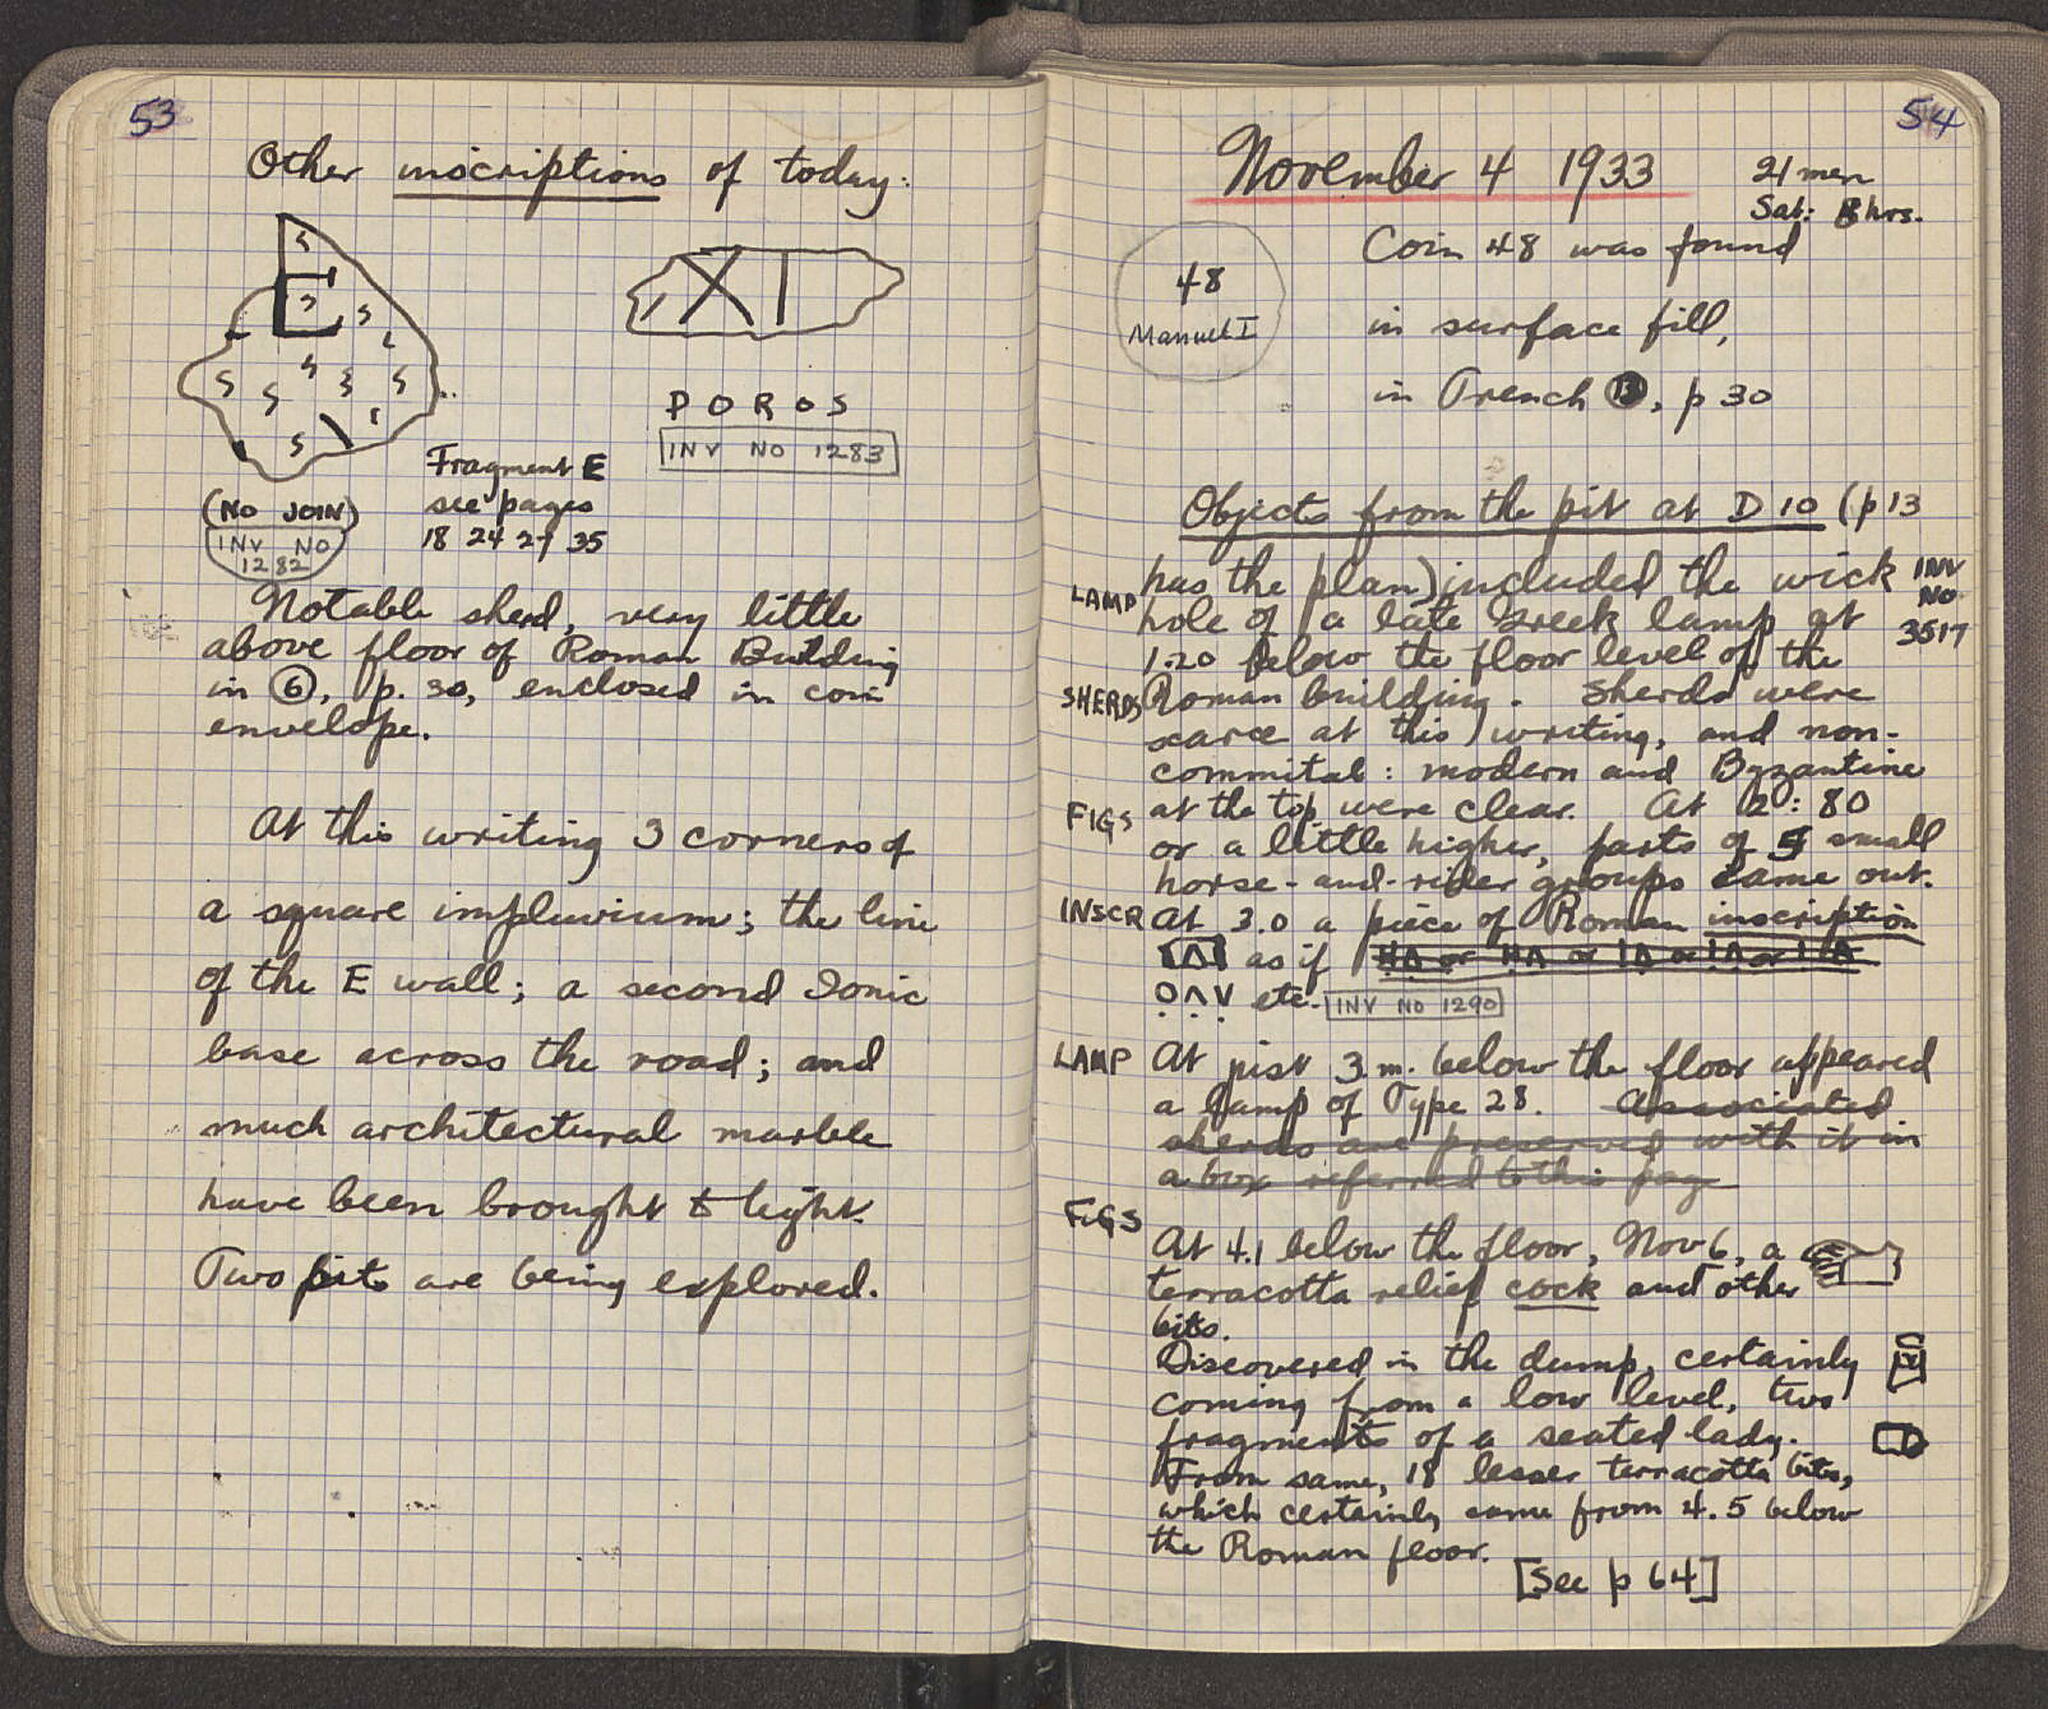 53
Other inscriptions of today:
E
XI
POROS
INV NO 1283
Fragment E
see pages
18 24 27 35
(NO JOIN)
INV NO
1282
Notable sherd, very little
above floor of Roman Building
in 6, p. 30, enclosed in coin
envelope.
At this writing 3 corners of
a square impluvium; the line
of the E wall; a second Ionic
base across the road; and
much architectural marble
have been brought to light.
Two pits are being explored.
54
November 4 1933
21 men
Sat: 8 hrs.
48
Manuel I
Coin 48 was found
in surface fill,
in Trench , p 30
Objects from the pit at D 10 (p 13
LAMP has the plan) included the wick INV
hole of a late Greek lamp at NO
1.20 below the floor level of the 3517
SHERDS Roman building. Sherds were
scarce at this writing, and non-
commital: modern and Byzantine
FIGS at the top were clear. At 2:80
or a little higher, parts of 5 small
horse-and-rider groups came out.
INSCR At 3.0 a piece of Roman inscription
as if
etc. INV NO 1290
LAMP At just 3 m. below the floor appeared
a lamp of Type 28. Associated
sherds are preserved with it in
a box referred to this pag
FIGS
At 4.1 below the floor, Nov 6, a
terracotta relief cock and other
bits.
Discovered in the dump, certainly
coming from a low level, two
fragments of a seated lady.
From same, 18 lesser terracotta bits,
which certainly came from 4.5 below
the Roman floor.
[See p 64]